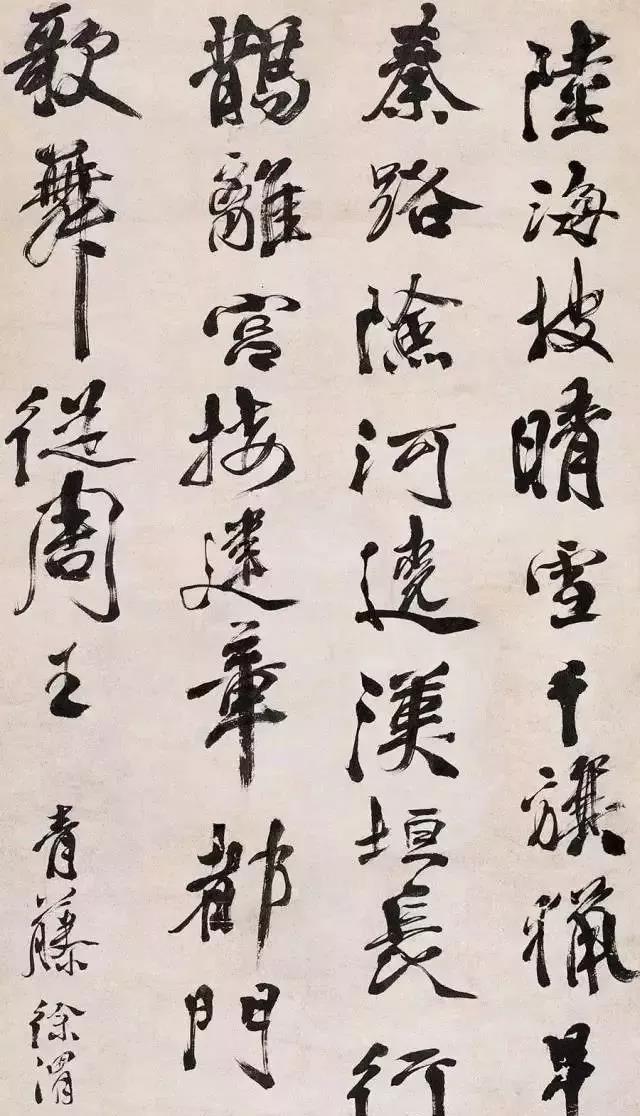 陸海披晴雪千旗獵早
秦路險河遶漢垣長行
鵲離宮接建章都門
歌舞從周王
青藤徐渭